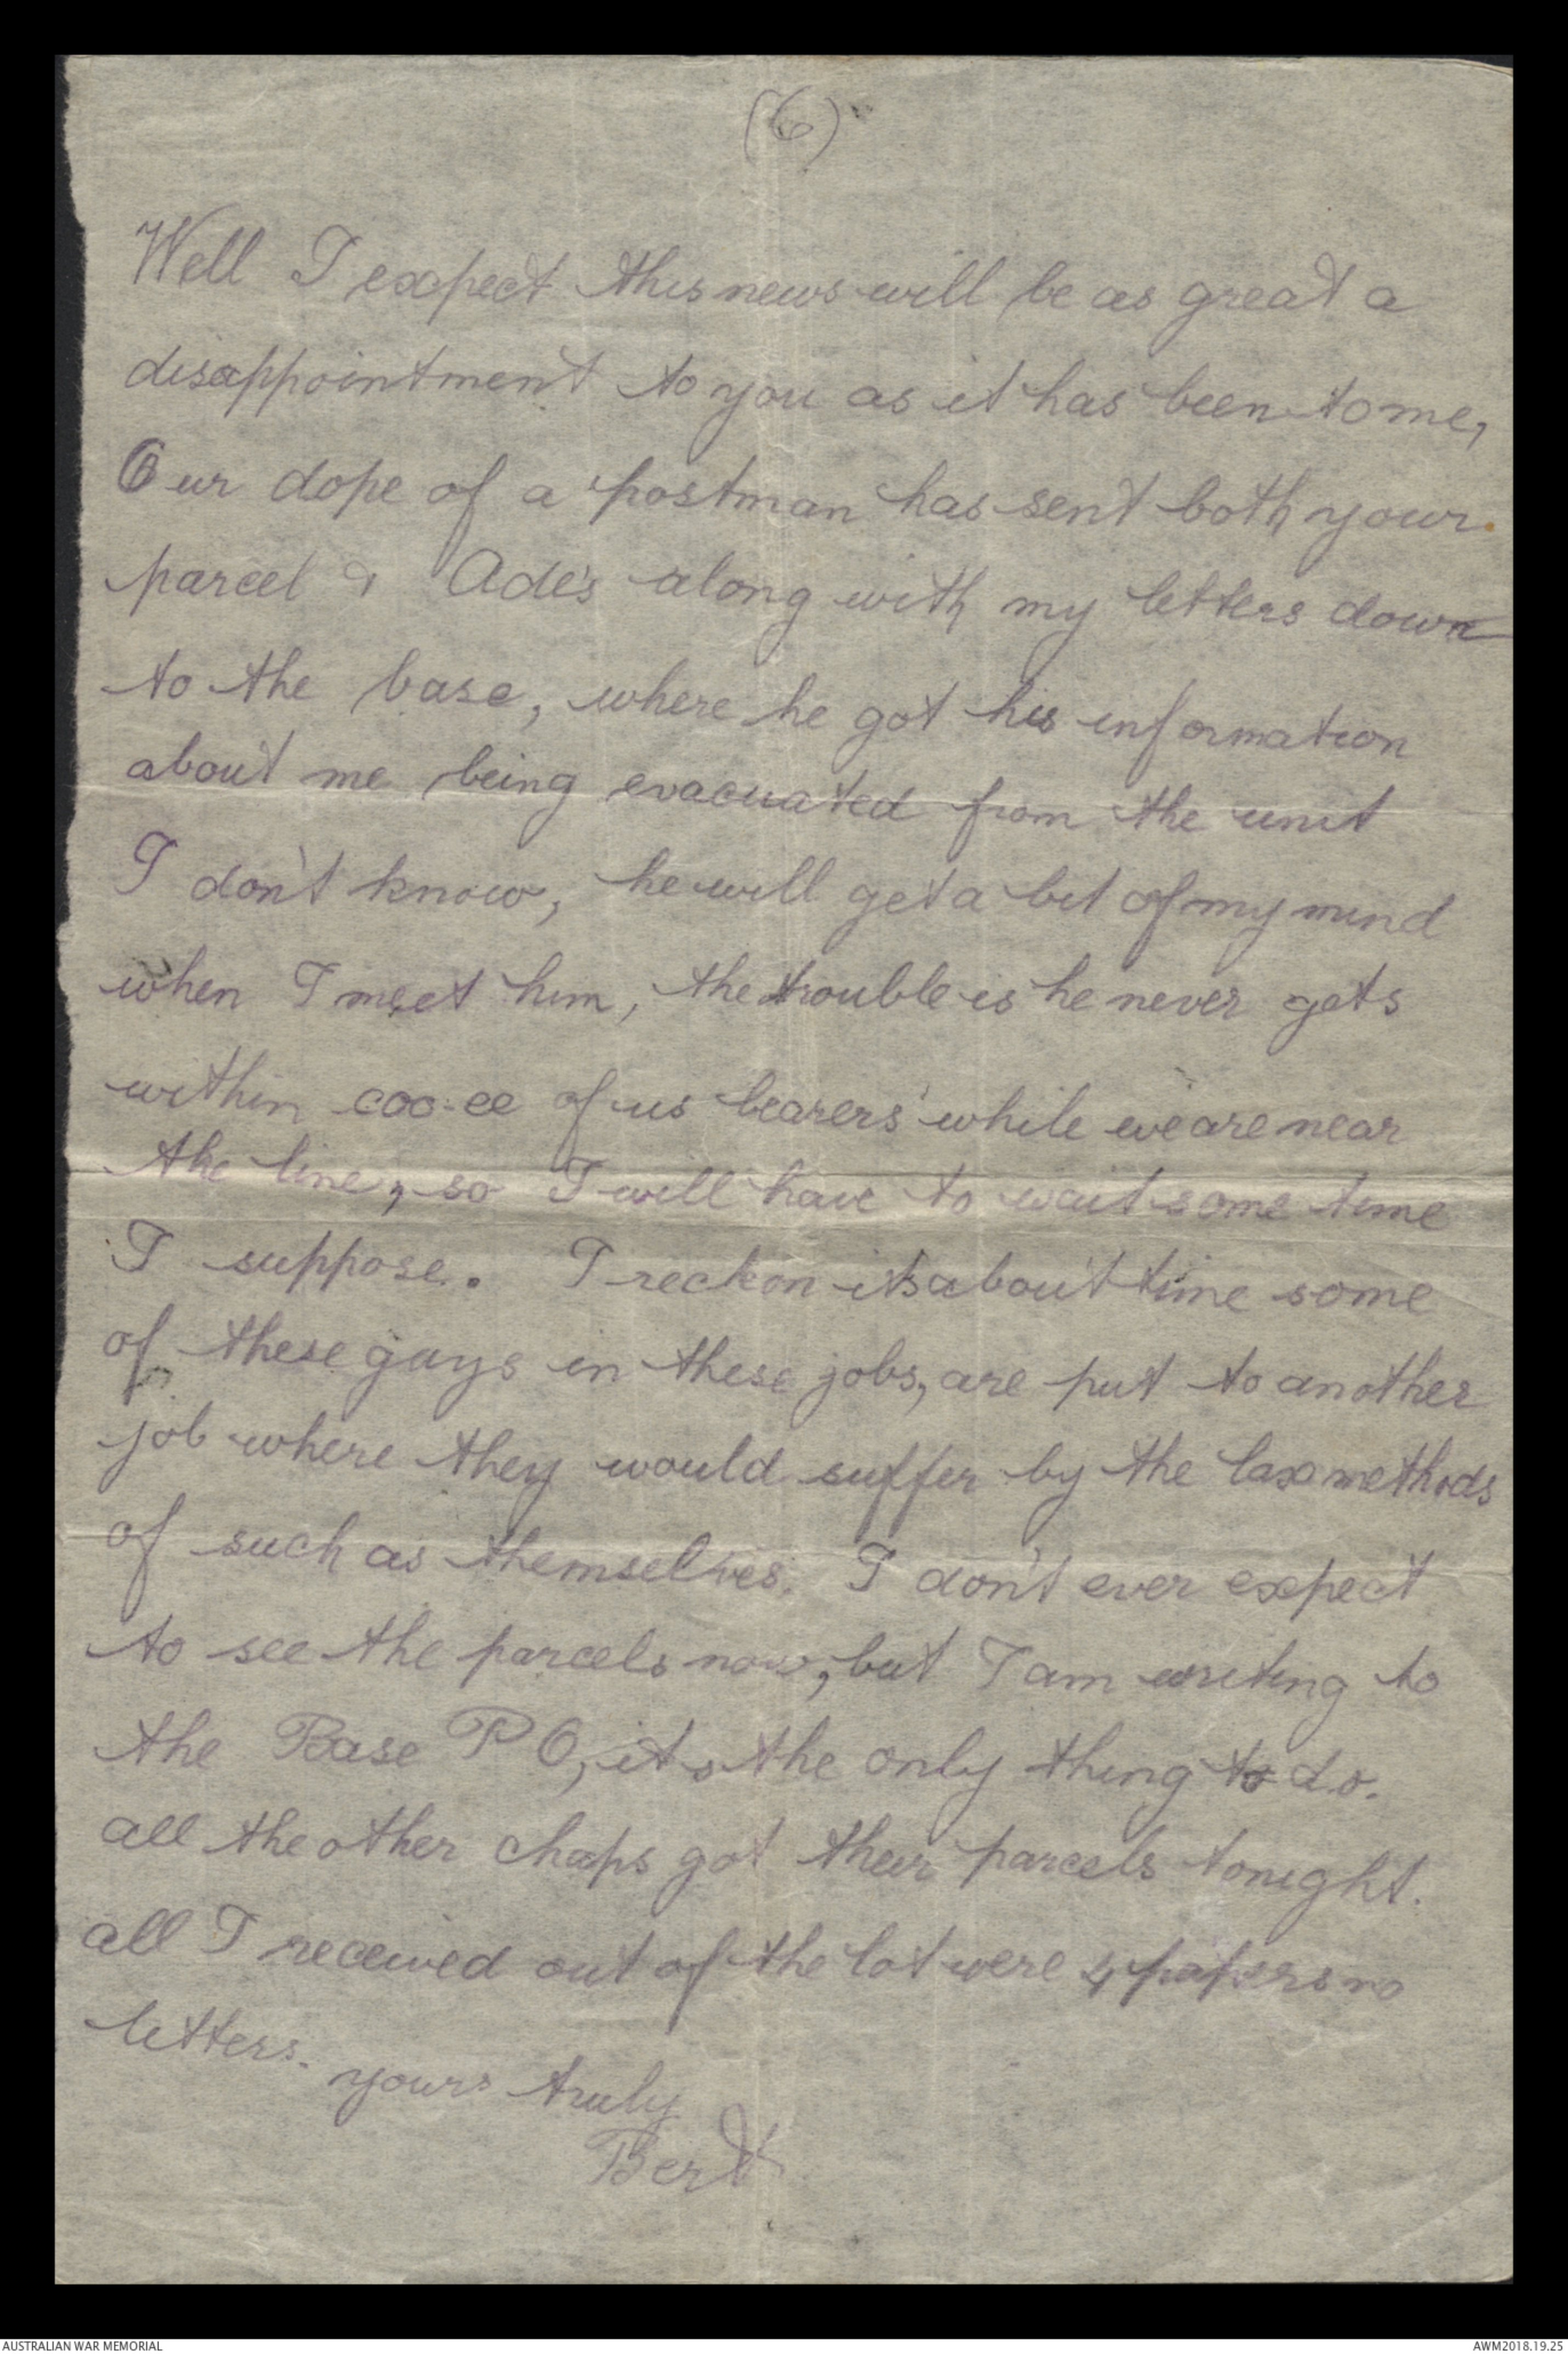 (6)
Well I expect this news will be as great a
disappointment to you as it has been to me,
Our dope of a postman has sent both your
parcel & Ade's along with my letters down
to the base, where he got his information
about me being evacuated from the unit
I don't know, he will get a bit of my mind
when I meet him, the trouble is he never gets
within coo-ee of us bearers while we are near
the line, so I will have to wait some time
I suppose. I reckon its about time some
of these guys in these jobs, are put to another
job where they would suffer by the lax methods
of such as themselves. I don't ever expect
to see the parcels now, but I am writing to
the Base P O, its the only thing to do.
all the other chaps got their parcels tonight.
all I received out of the lot were 4 papers no
letters.
yours truly
Bert
AUSTRALIAN WAR MEMORIAL
AWM2018.19.25